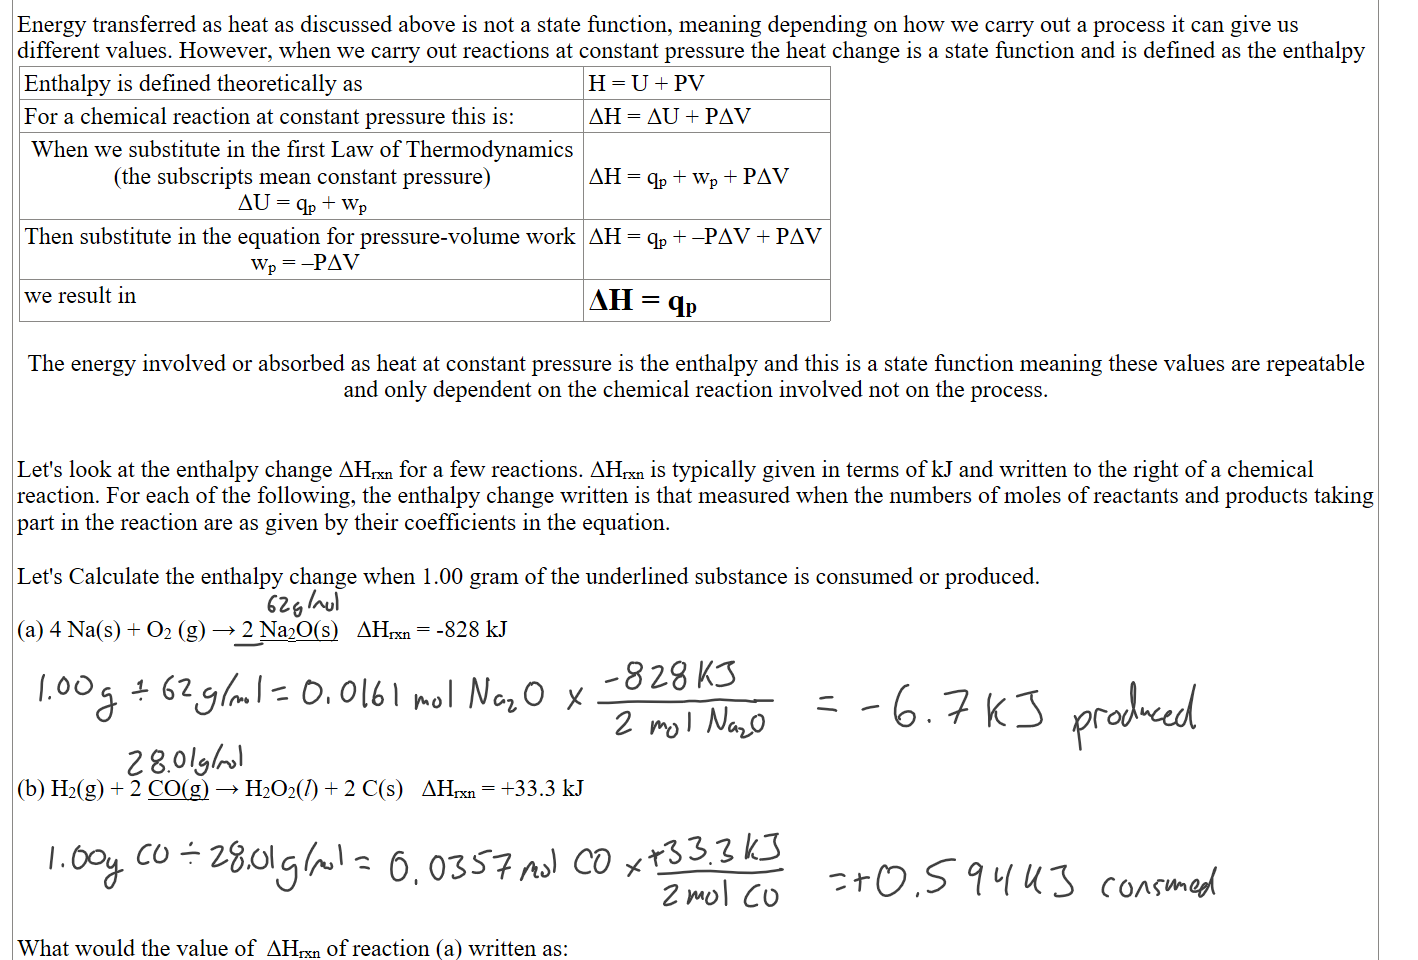 Energy transferred as heat as discussed above is not a state function, meaning depending on how we carry out a process it can give us
different values. However, when we carry out reactions at constant pressure the heat change is a state function and is defined as the enthalpy
Enthalpy is defined theoretically as H = U + PV
For a chemical reaction at constant pressure this is: ΔH = ΔU + PΔV
When we substitute in the first Law of Thermodynamics
(the subscripts mean constant pressure) ΔH = qp + wp + PΔV
ΔU = qp + wp
Then substitute in the equation for pressure-volume work ΔH = qp + –PΔV + PΔV
wp = –PΔV
we result in ΔH = qp
The energy involved or absorbed as heat at constant pressure is the enthalpy and this is a state function meaning these values are repeatable
and only dependent on the chemical reaction involved not on the process.
Let's look at the enthalpy change ΔHrxn for a few reactions. ΔHrxn is typically given in terms of kJ and written to the right of a chemical
reaction. For each of the following, the enthalpy change written is that measured when the numbers of moles of reactants and products taking
part in the reaction are as given by their coefficients in the equation.
Let's Calculate the enthalpy change when 1.00 gram of the underlined substance is consumed or produced.
62g/mol
(a) 4 Na(s) + O2 (g) → 2 Na2O(s) ΔHrxn = -828 kJ
1.00g ÷ 62g/mol = 0.0161 mol Na2O x -828 KJ / 2 mol Na2O = -6.7 KJ produced
28.01g/mol
(b) H2(g) + 2 CO(g) → H2O2(l) + 2 C(s) ΔHrxn = +33.3 kJ
1.00g CO ÷ 28.01g/mol = 0.0357 mol CO x +33.3 kJ / 2 mol CO = +0.594 KJ consumed
What would the value of ΔHrxn of reaction (a) written as: